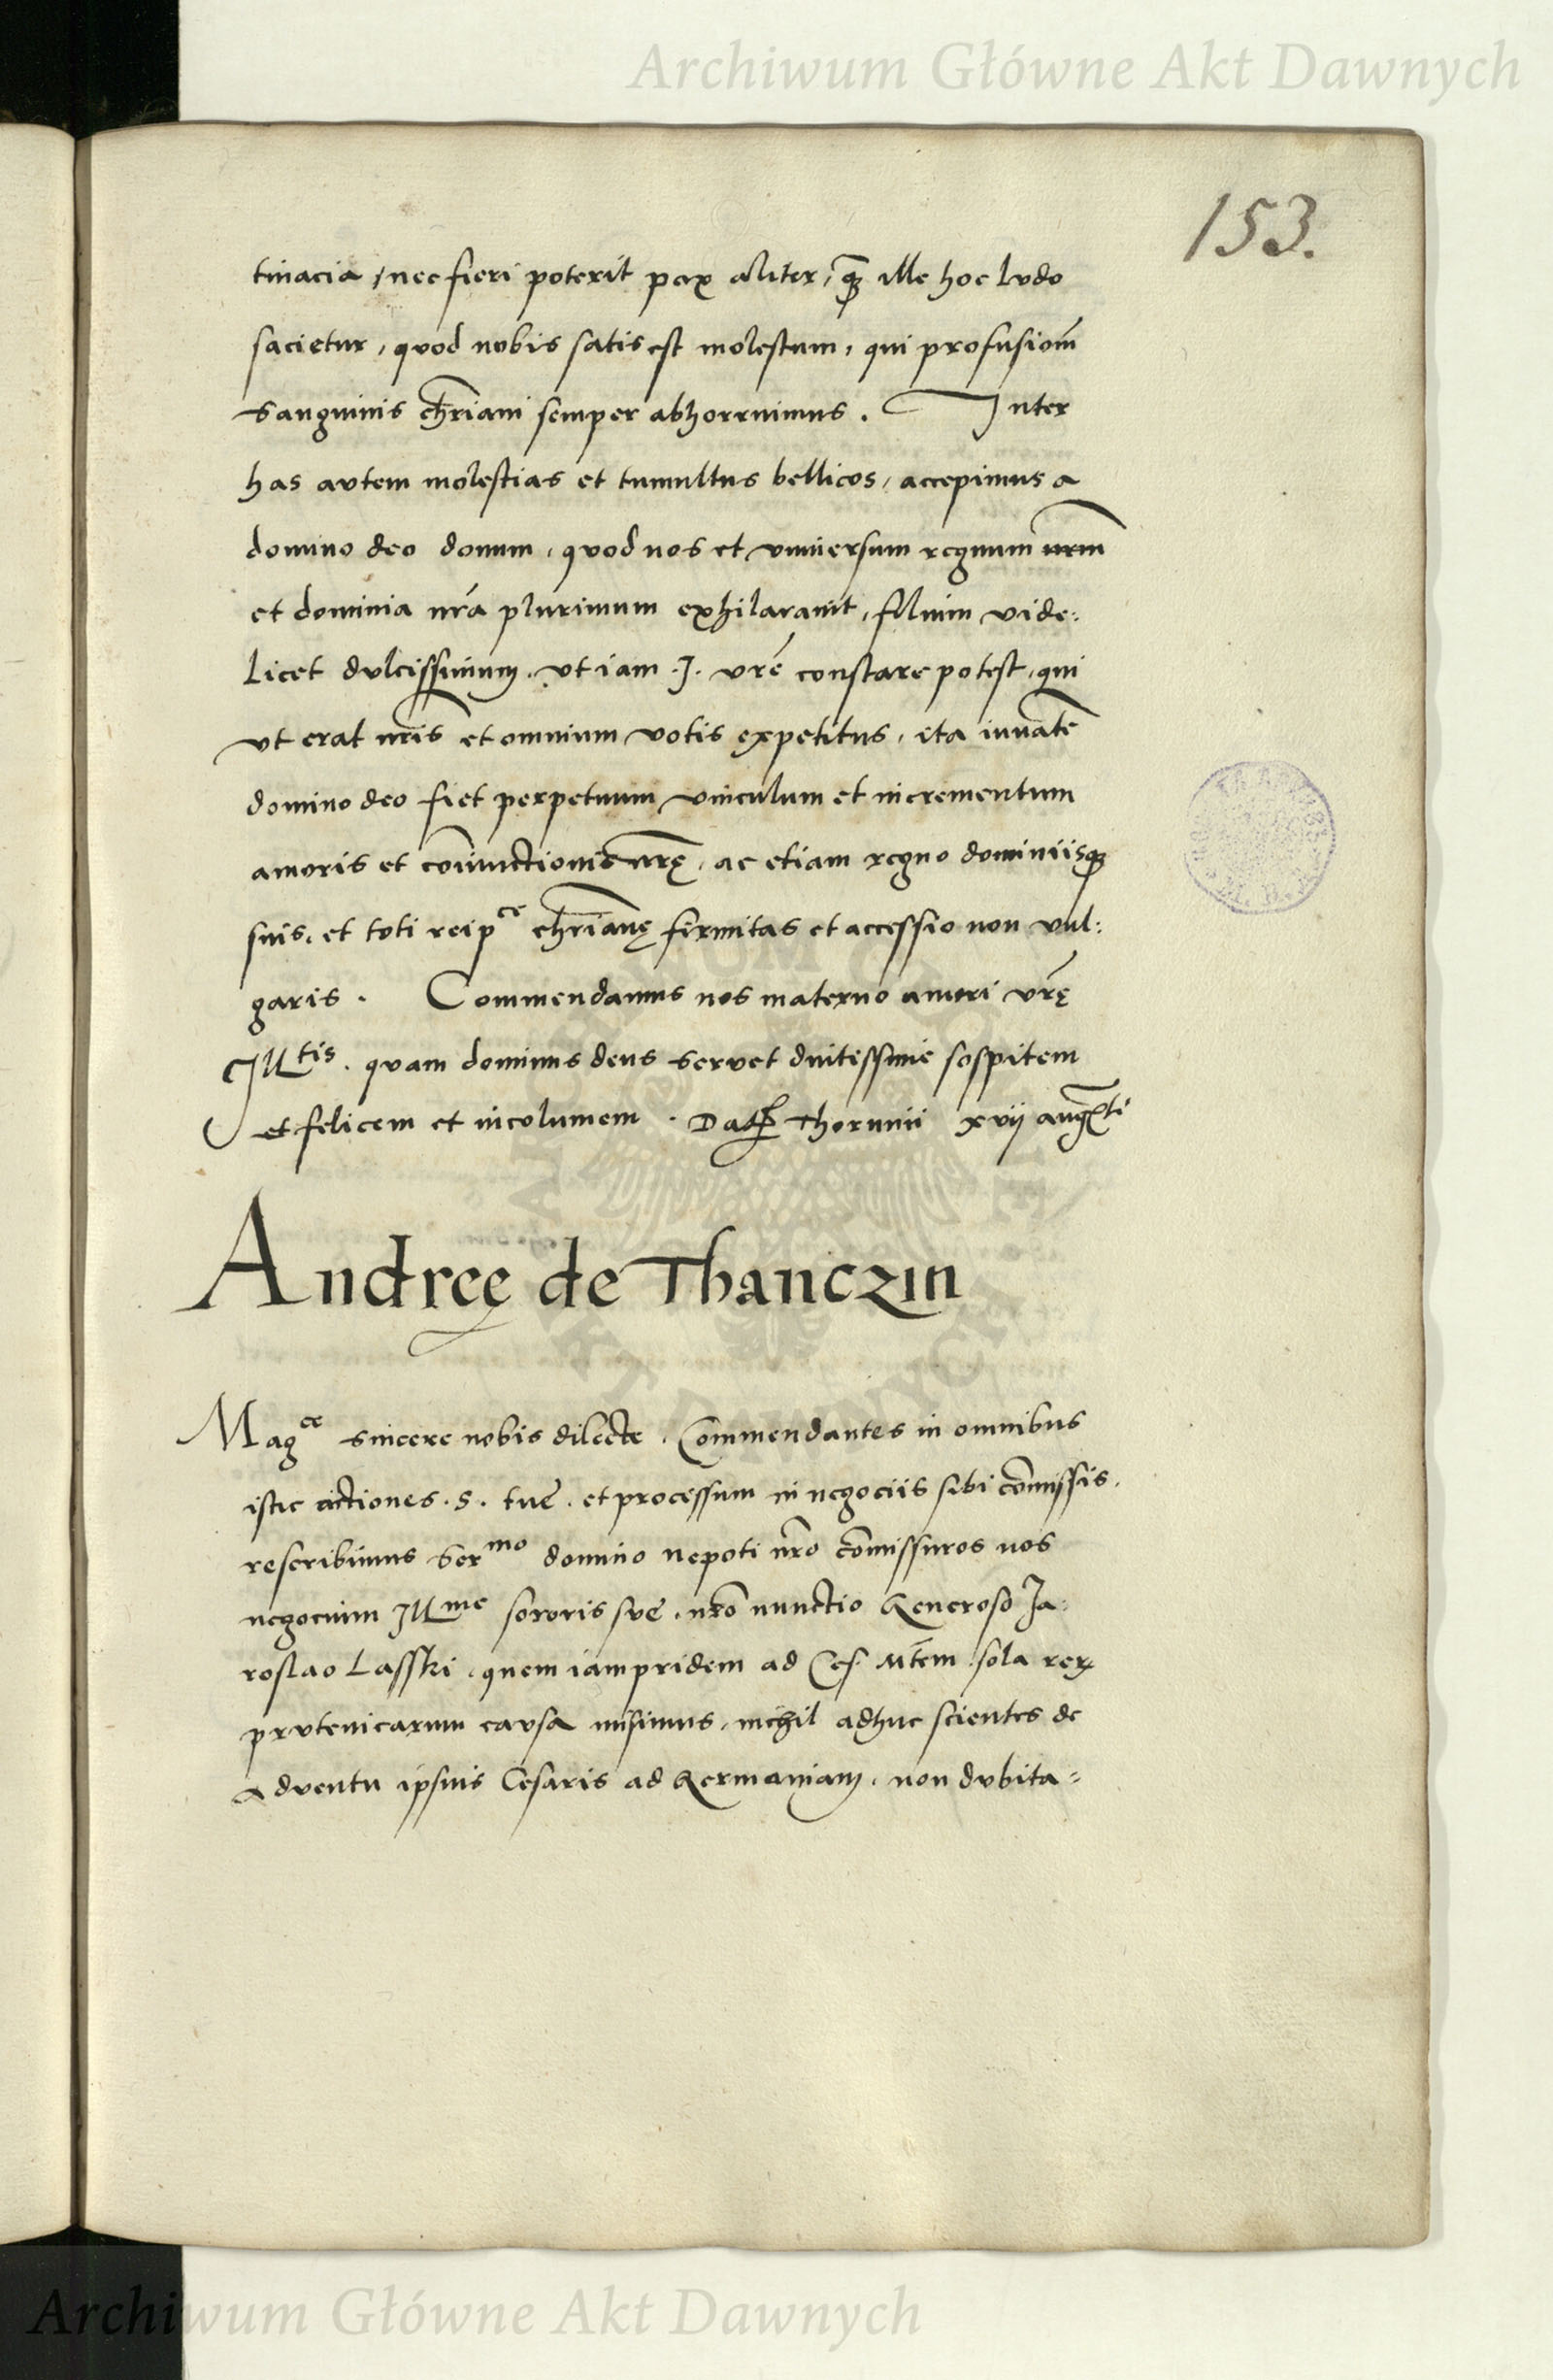 Archiwum Główne Akt Dawnych
153.
tinacia, nec fieri poterit pax aliter, q̃ꝫ ille hoc ludo
sacietur, quod nobis satis est molestum, qui profusiom̃
sanguinis chr̃iani semper abhorruimus. Inter
has autem molestias et tumultus bellicos, accepimus a
domino deo donum, quod nos et vniuersum regnum nr̃m
et dominia nr̃a plurimum exhilarauit, filium vide:
licet dulcissimum, vt iam .J. vrẽ constare potest, qui
vt erat nr̃is et omnium votis expetitus, ita iuuãte
domino deo fiet perpetuum vinculum et incrementum
amoris et coniunctionis nr̃ę, ac etiam regno dominiisqꝫ
suis, et toti reip^ce chr̃ianę firmitas et accessio non vul:
garis. Commendamus nos materno amori vr̃ę
Ill^tis. quam dominus deus seruet diutissime sospitem
et felicem et incolumem. Datꝭ Thorunii xvij augꝰti
Andreę de Thanczin
Mag^ce sincere nobis dilecte. Commendantes in omnibus
istic actiones .S. tuẽ. et processum in negociis sibi com̃issis.
rescribimus Ser^mo domino nepoti nr̃o com̃issuros nos
negocium Ill^me sororis suę, nr̃o nunctio Generoso Ja:
roslao Lasski, quem iampridem ad Ces. Mt̃em sola reꝝ
prutenicarum causa misimus, nichil adhuc scientes de
aduentu ipsius Cesaris ad Germaniam, non dubita=
Archiwum Główne Akt Dawnych